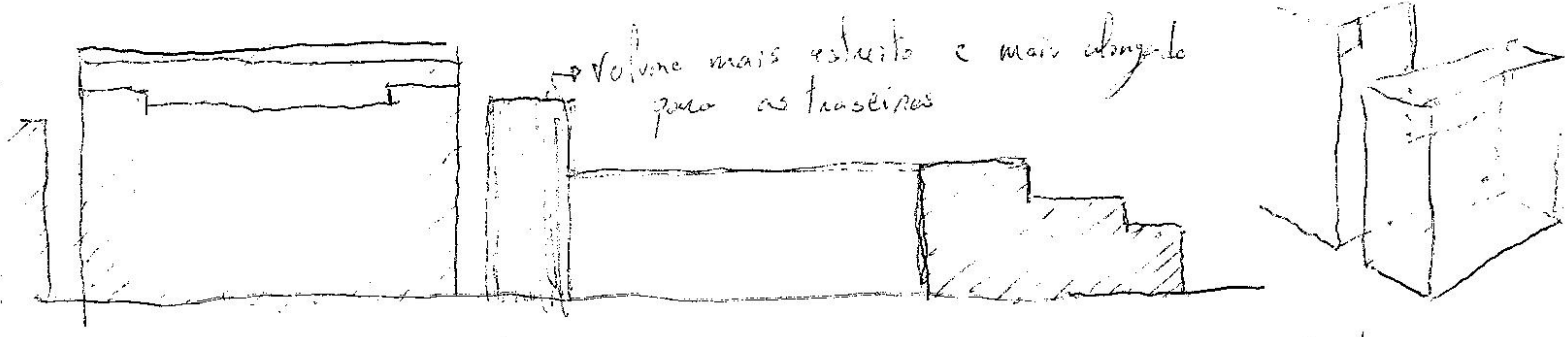 Volume mais estreito e mais alongado
para as traseiras